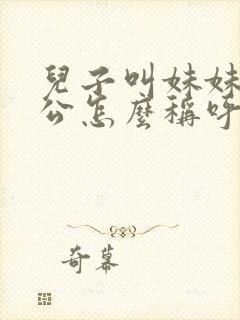 兒子叫妹妹
公怎麼稱呼
奇幕